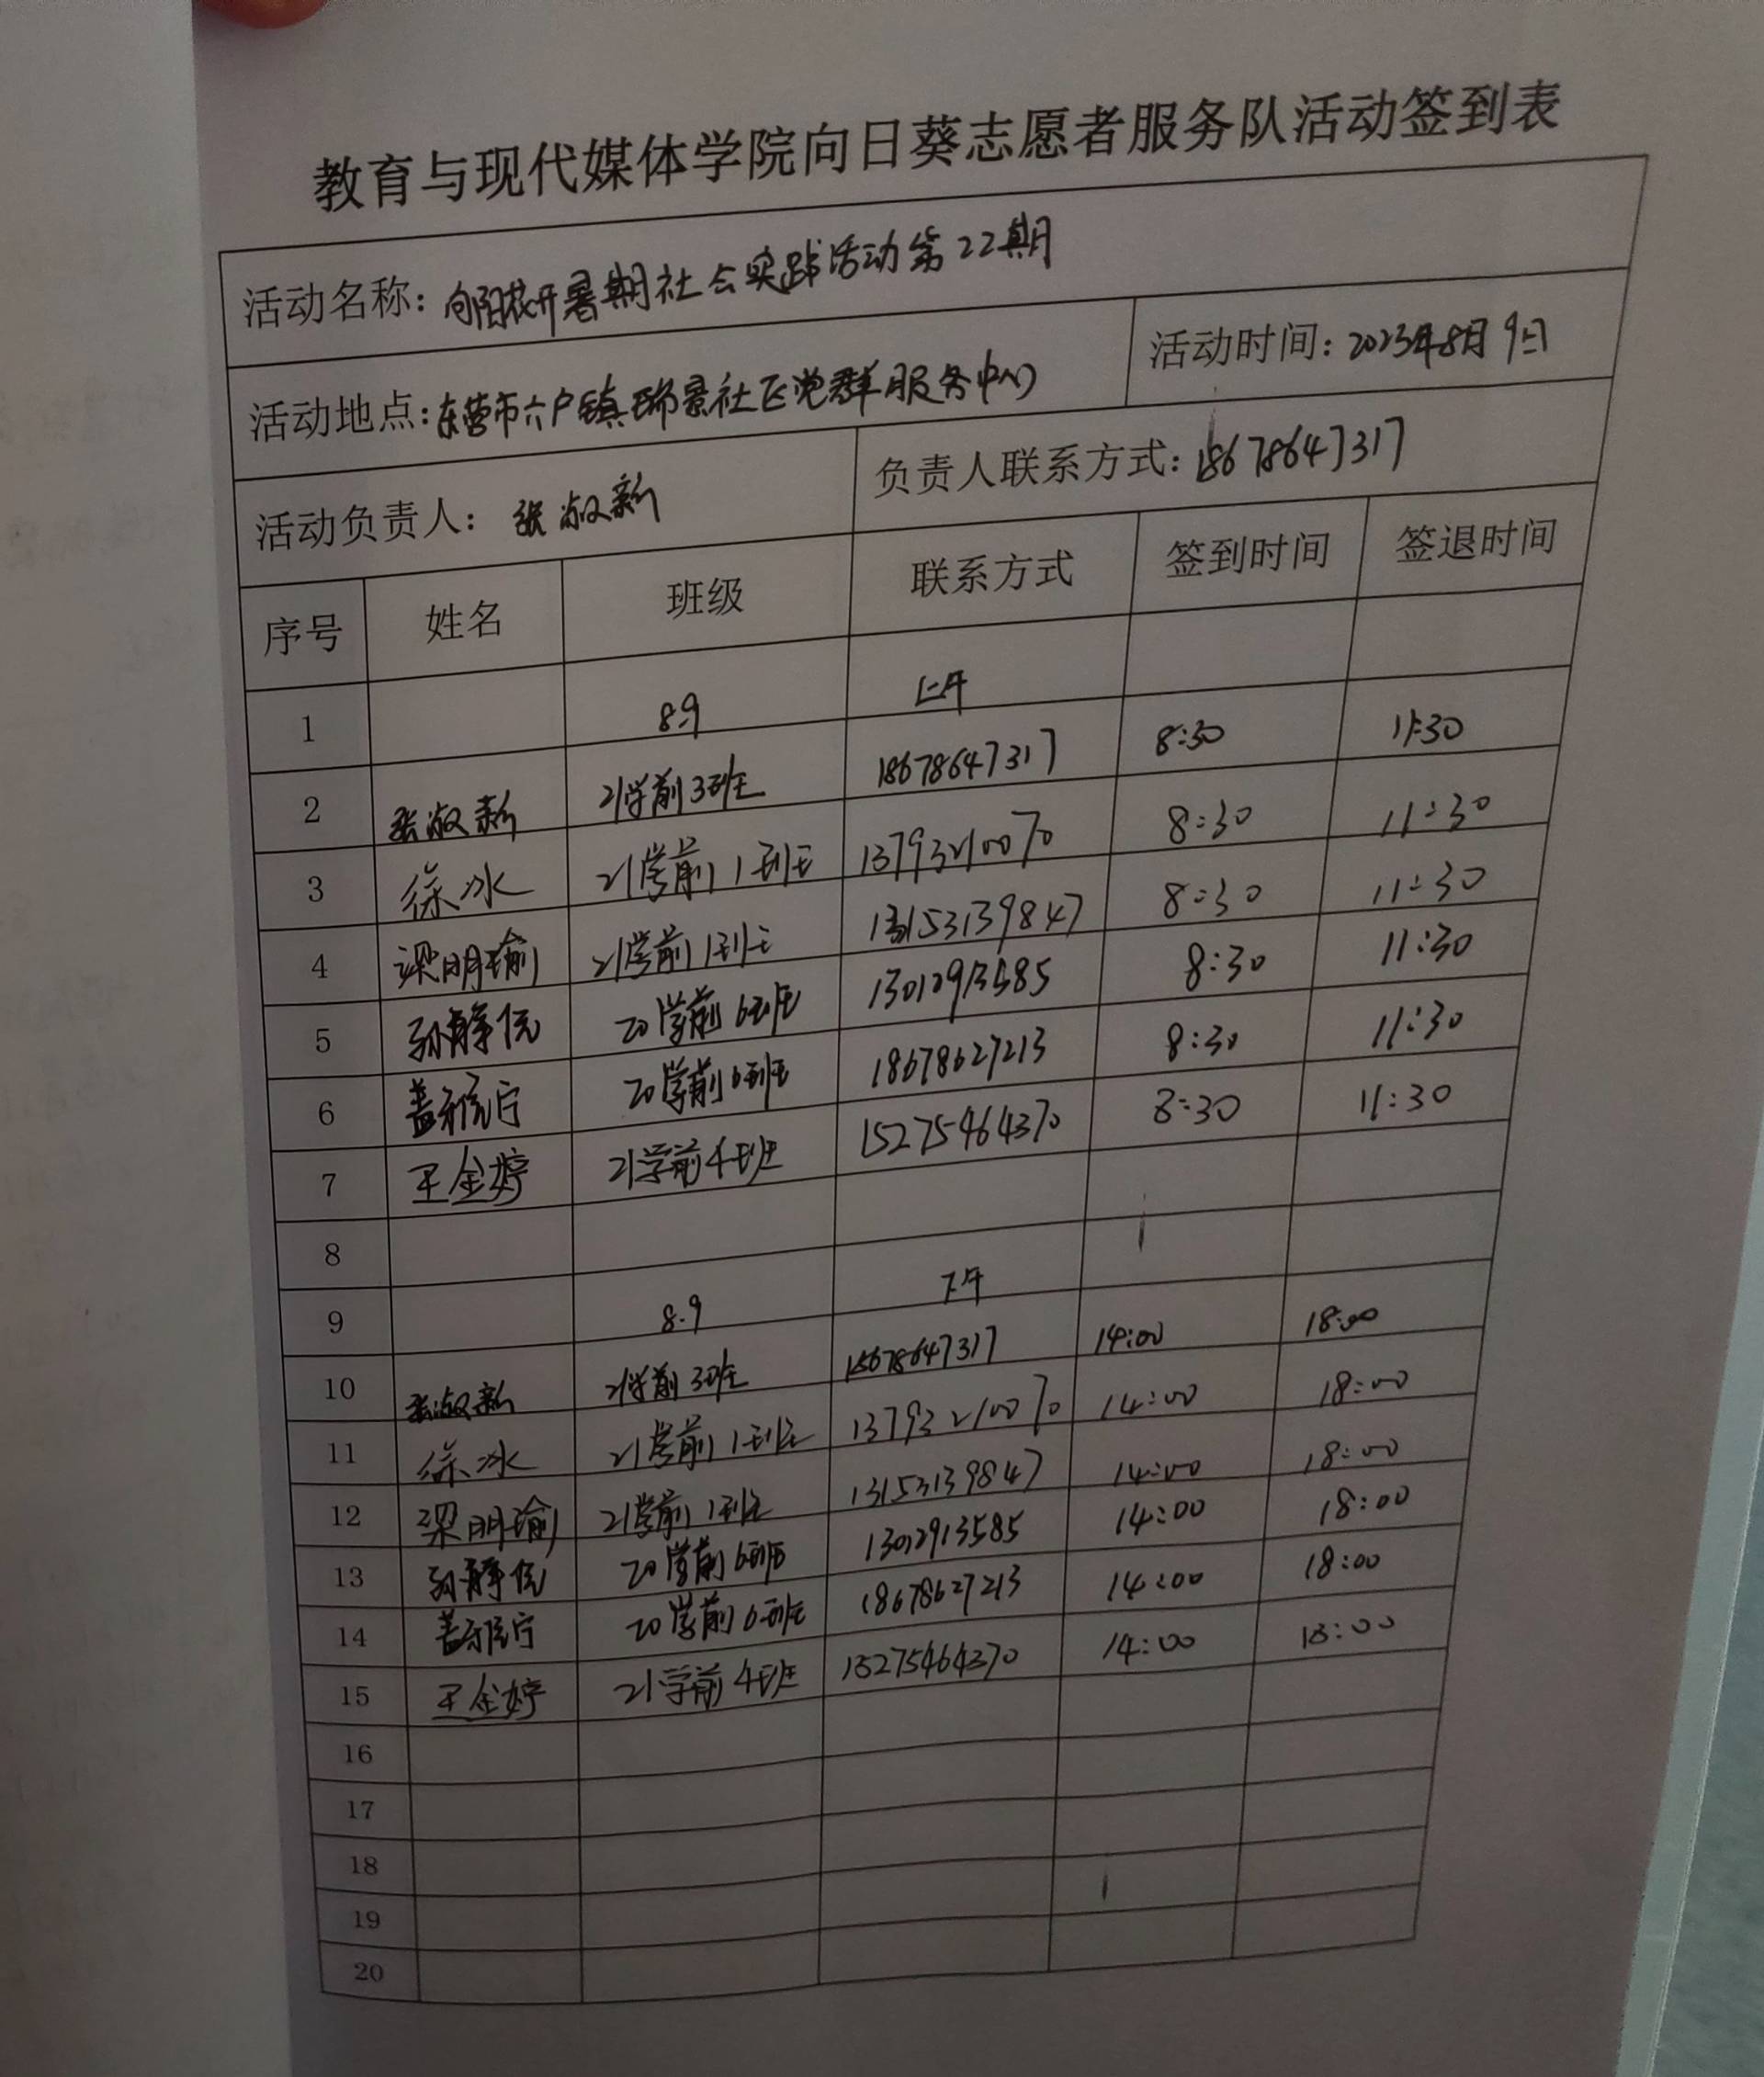 教育与现代媒体学院向日葵志愿者服务队活动签到表
活动名称：向阳花开暑期社会实践活动第22期
活动地点：东营市六户镇瑞景社区党群服务中心 活动时间：2023年8月9日
活动负责人：张淑新 负责人联系方式：18678647317
序号 姓名 班级 联系方式 签到时间 签退时间
1 8.9 上午
2 张淑新 21学前3班 18678647317 8:30 11:30
3 徐冰 21学前1班 13793210070 8:30 11:30
4 梁明瑜 21学前1班 13153139847 8:30 11:30
5 孙静侃 20学前6班 13012913585 8:30 11:30
6 盖 宁 20学前6班 18678627213 8:30 11:30
7 王金婷 21学前4班 15275464370 8:30 11:30
8
9 8.9 下午
10 张淑新 21学前3班 18678647317 14:00 18:00
11 徐冰 21学前1班 13793210070 14:00 18:00
12 梁明瑜 21学前1班 13153139847 14:00 18:00
13 孙静侃 20学前6班 13012913585 14:00 18:00
14 盖 宁 20学前6班 18678627213 14:00 18:00
15 王金婷 21学前4班 15275464370 14:00 18:00
16
17
18
19
20